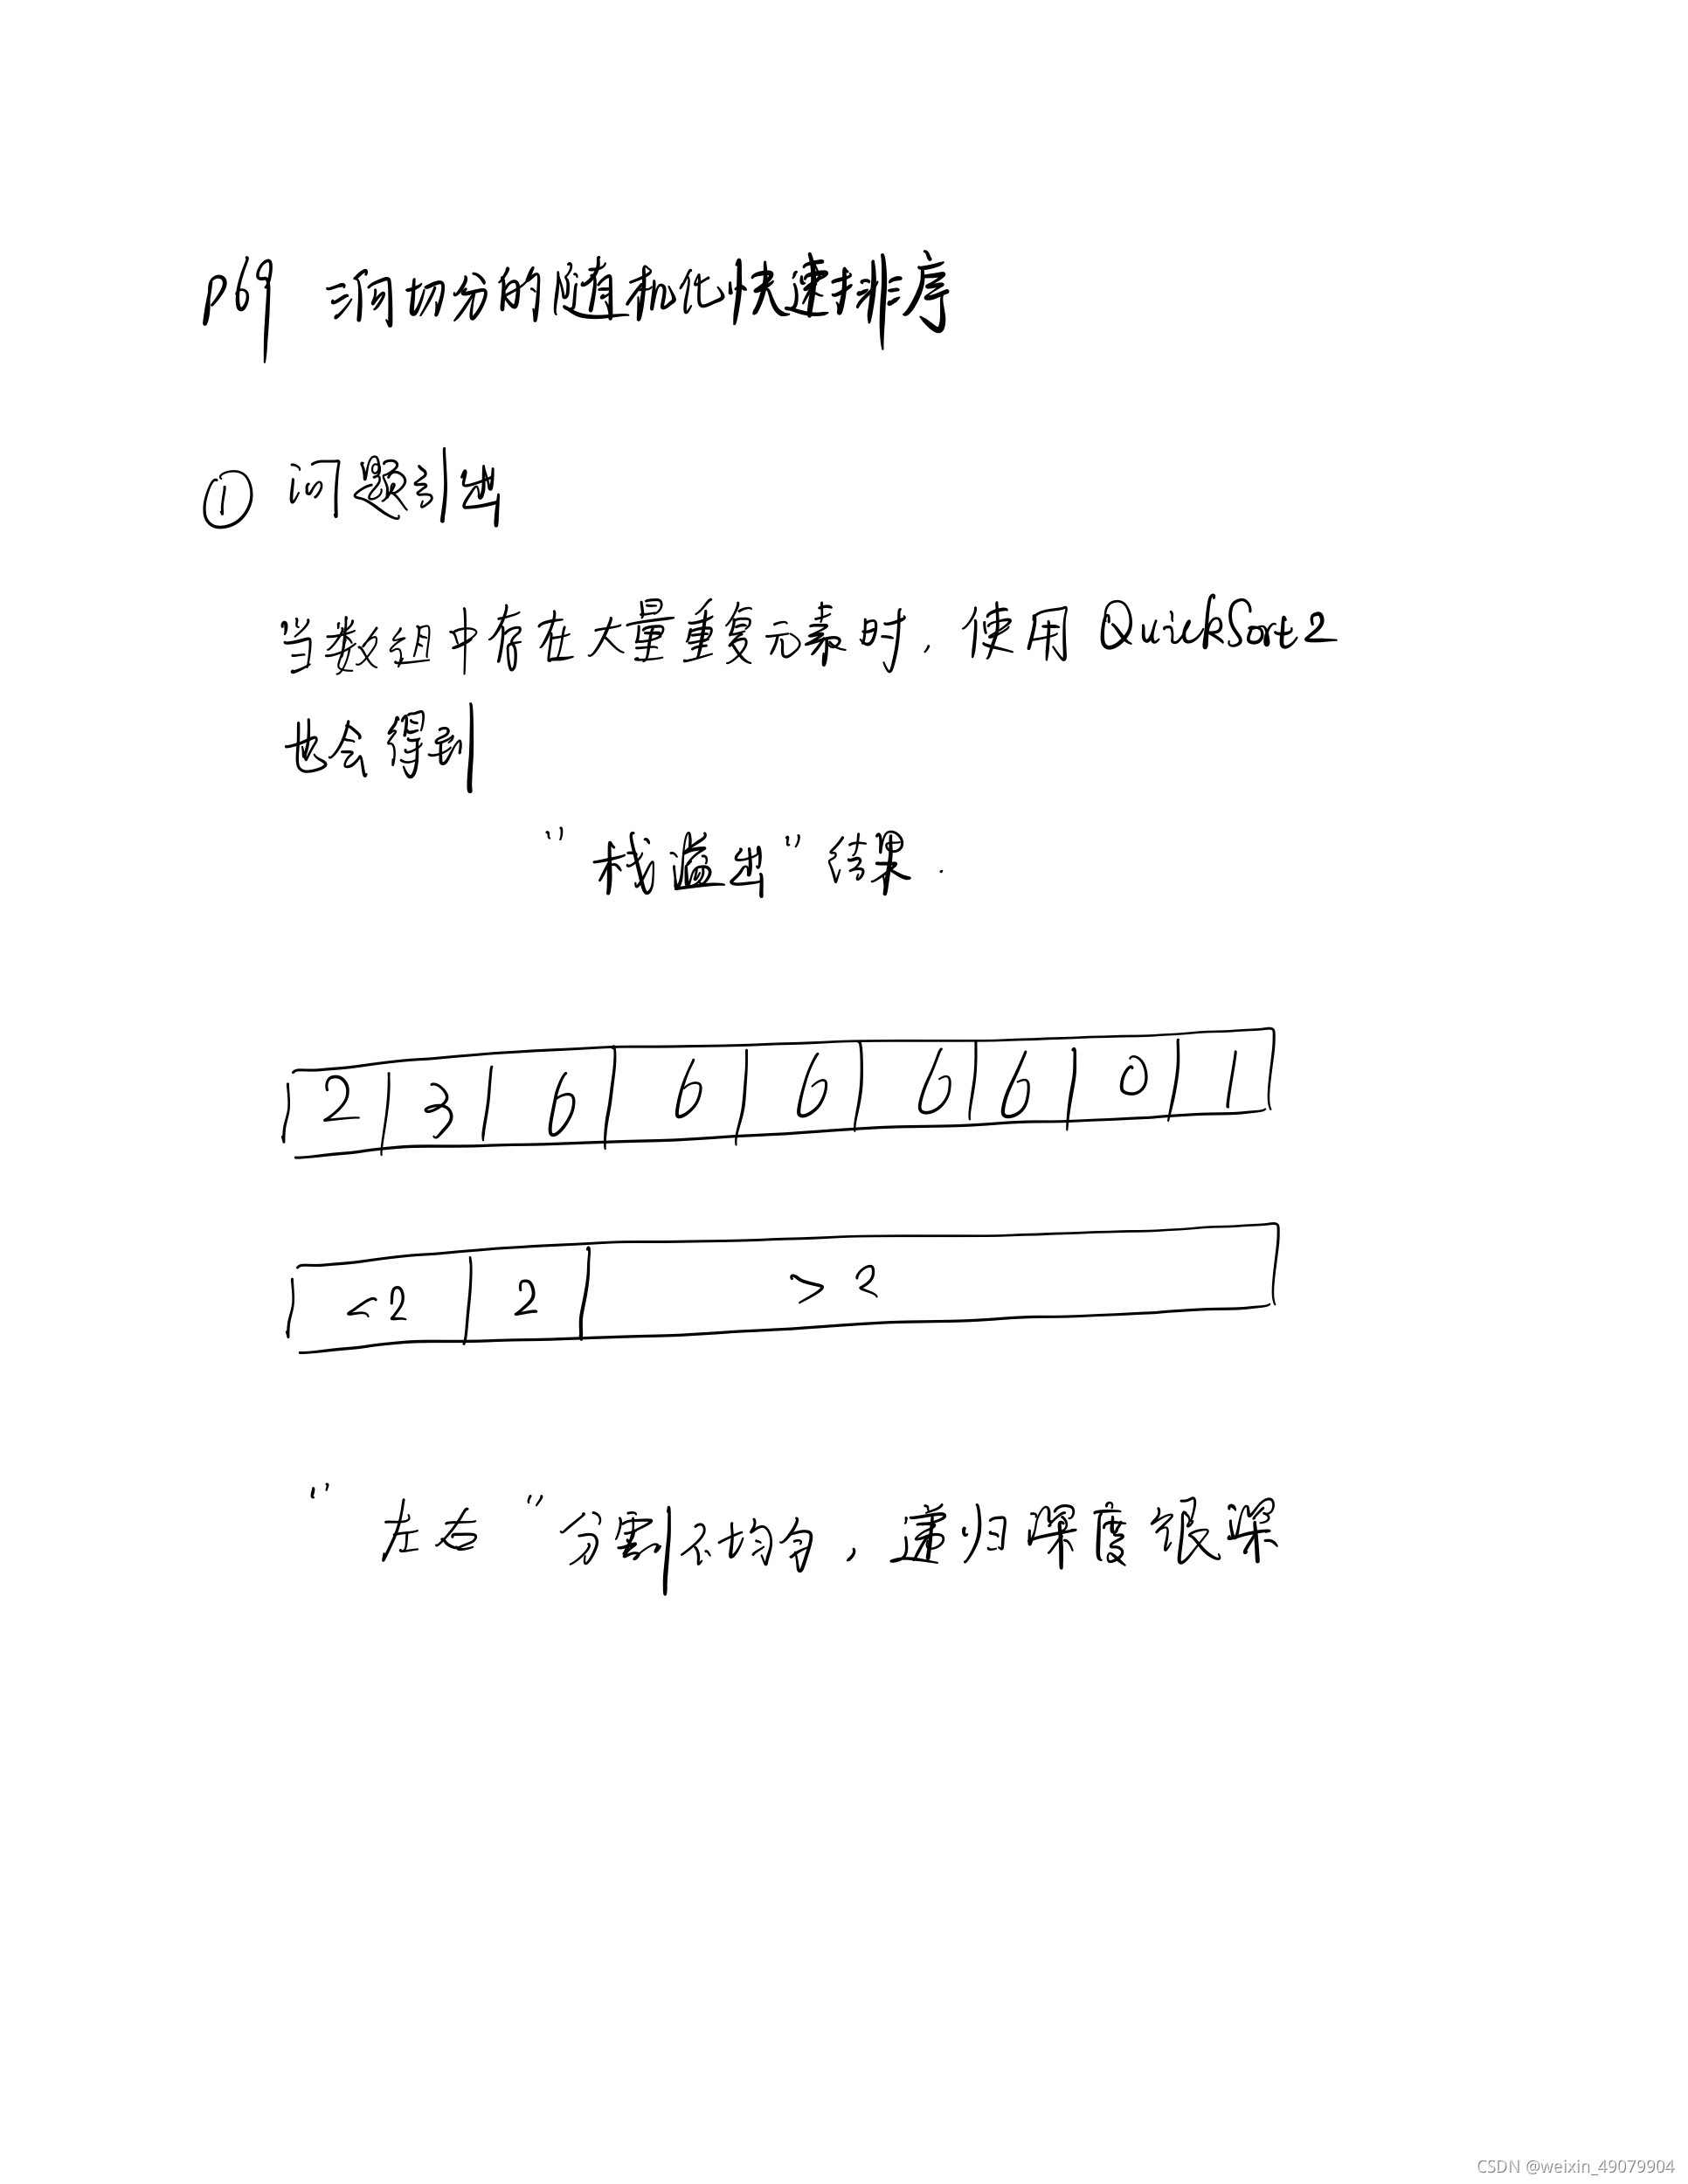 P69 三向切分的随机化快速排序
① 问题引出
当数组中存在大量重复元素时，使用 QuickSort2
也会得到
"栈溢出"结果.
2 3 6 6 6 6 6 0 1
<2 2 >2
"左右"分割不均匀，递归深度很深
CSDN @weixin_49079904